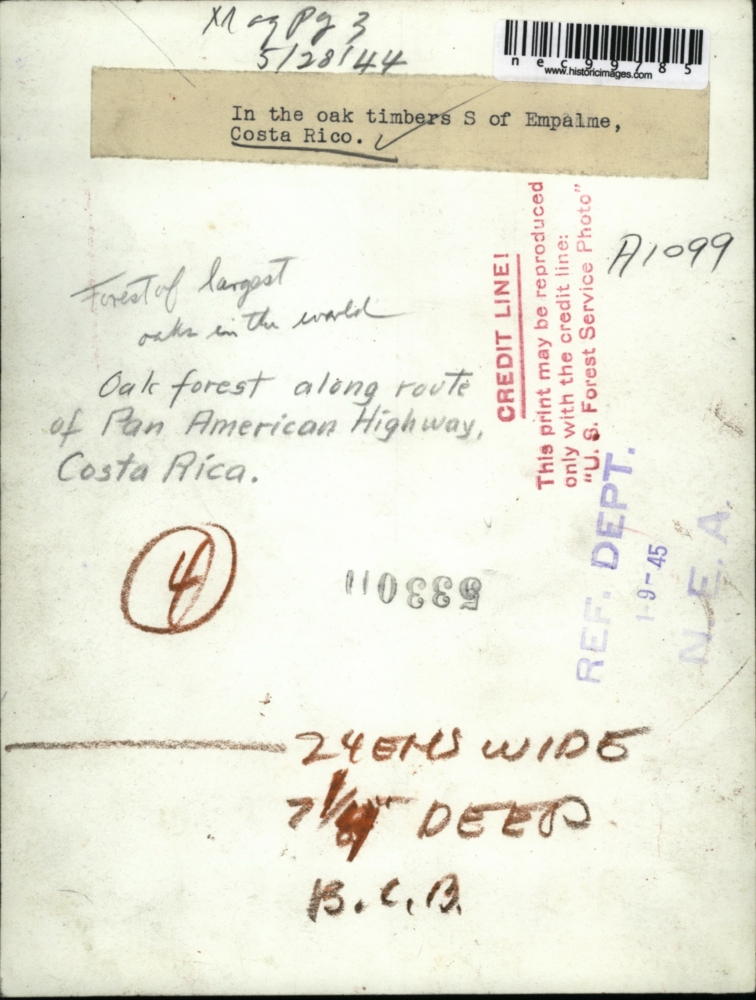 Mag Pg 3
5/28/44
nec99785
www.historicimages.com
In the oak timbers S of Empalme,
Costa Rico.
A1099
CREDIT LINE!
This print may be reproduced
only with the credit line:
"U. S. Forest Service Photo"
Forest of largest
oaks in the world
Oak forest along route
of Pan American Highway,
Costa Rica.
REF. DEPT.
1-9-45
N.E.A.
4
24 EMS WIDE
DEEP
B.C.B.